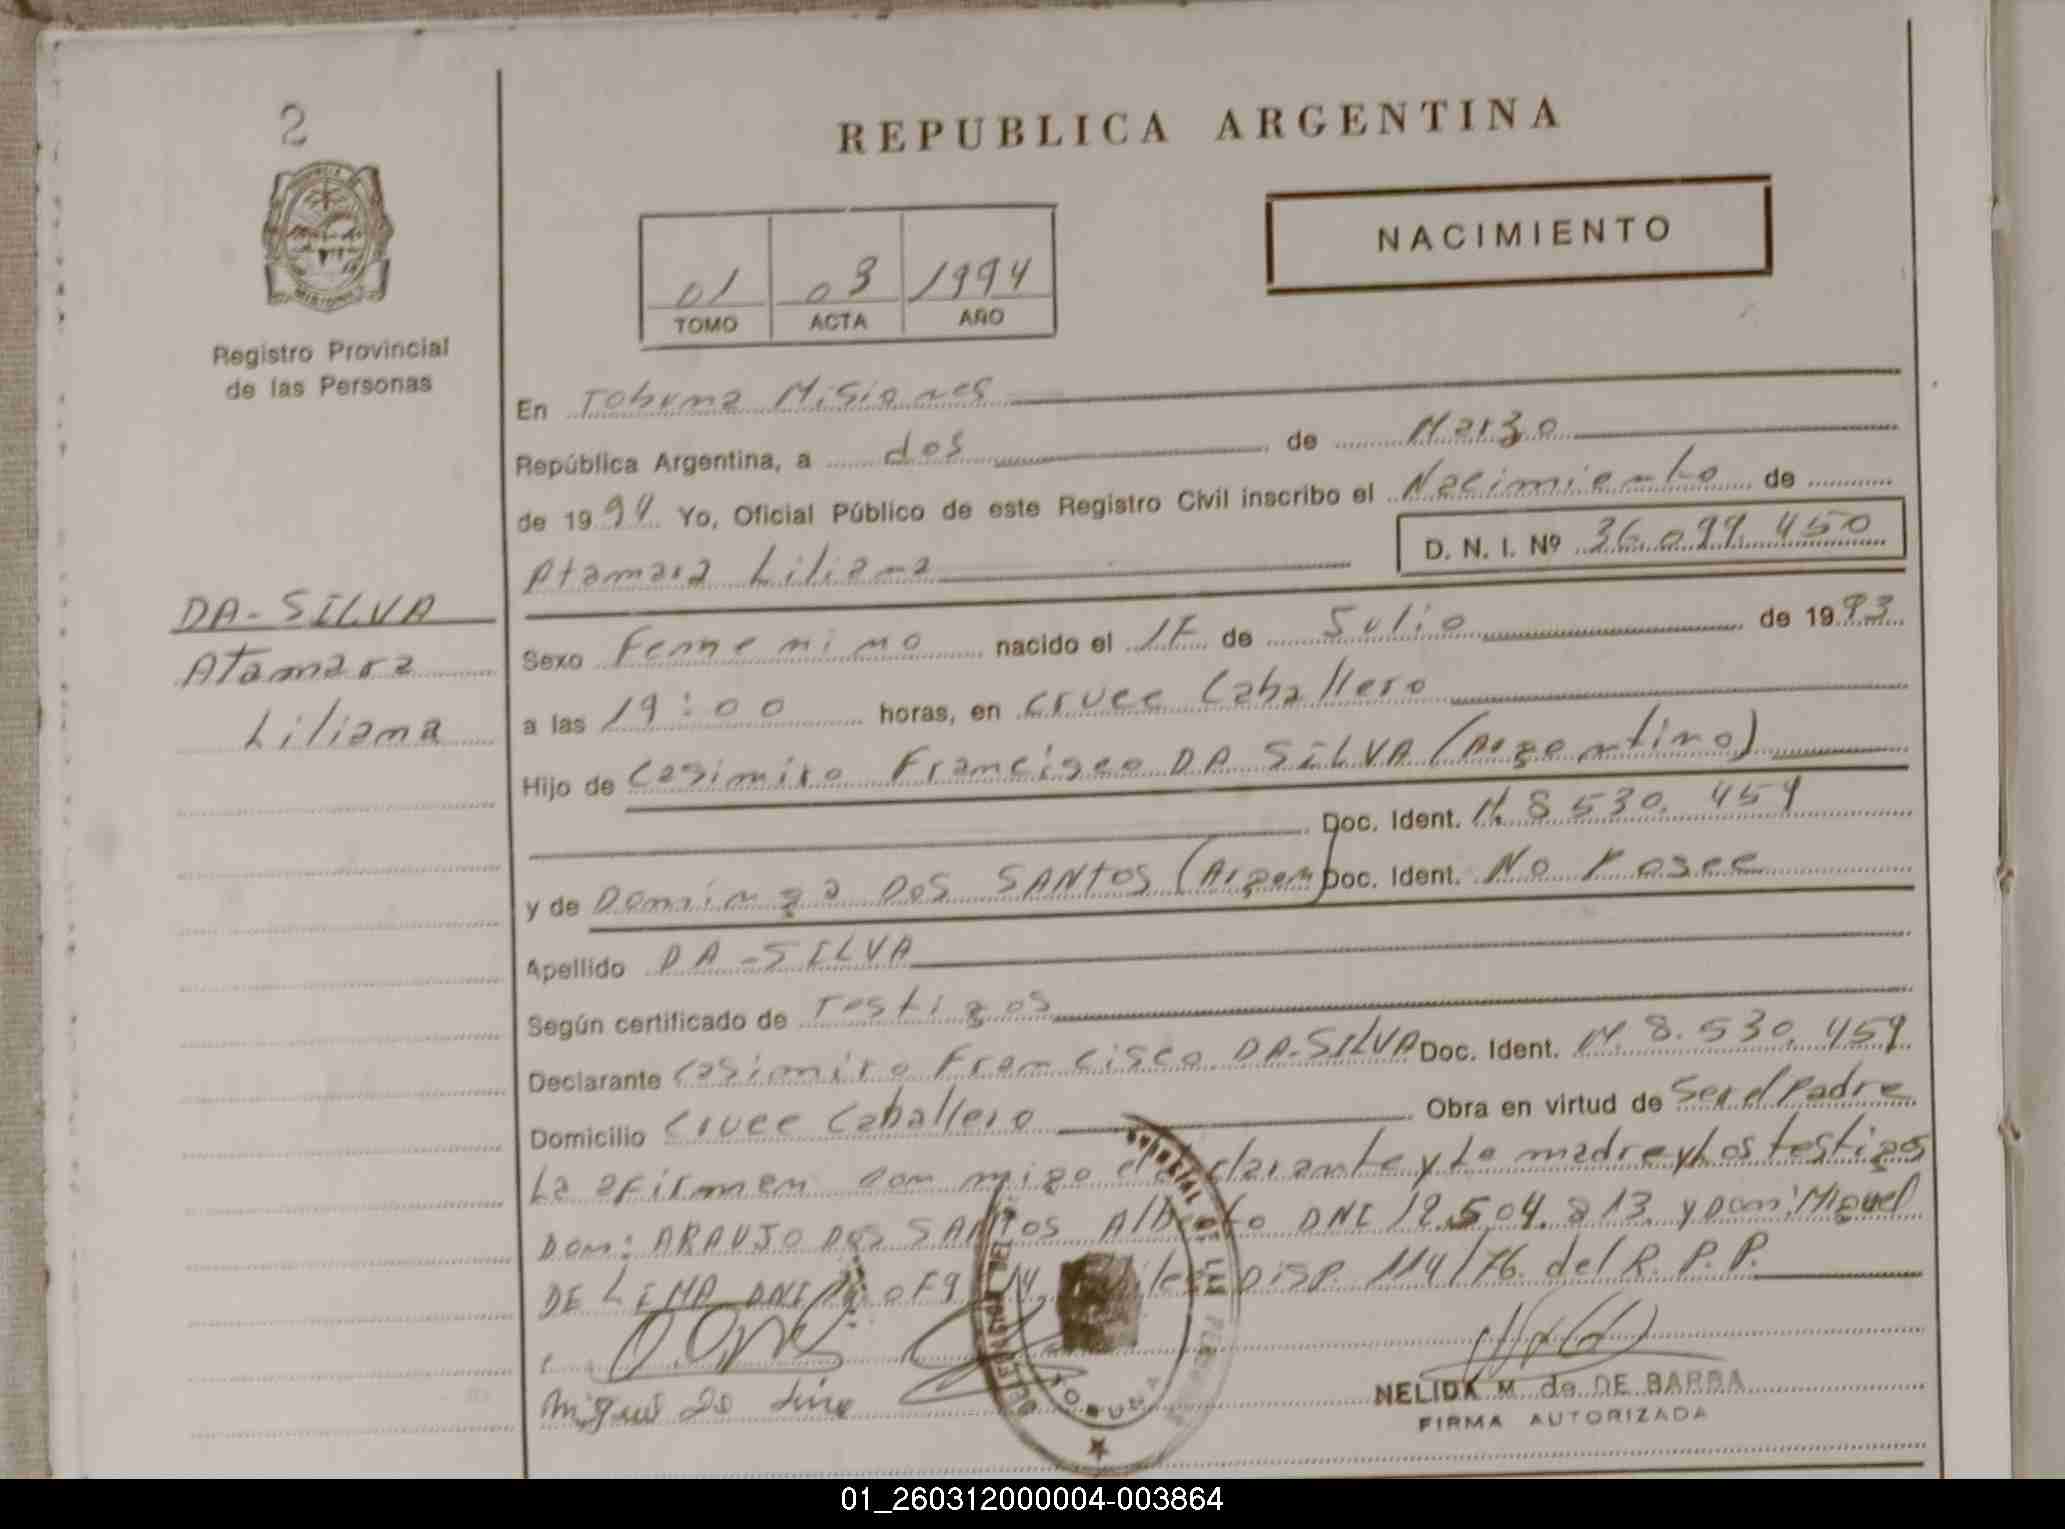 2
REPUBLICA ARGENTINA
NACIMIENTO
01 03 1994
TOMO ACTA AÑO
Registro Provincial
de las Personas
DA-SILVA
Atamara
Liliana
En Tobuna Misiones
República Argentina, a dos de Marzo
de 1994 Yo, Oficial Público de este Registro Civil inscribo el Nacimiento de
Atamara Liliana D. N. I. Nº 36.099.450
Sexo Femenino nacido el 17 de Julio de 1993
a las 19:00 horas, en cruce Caballero
Hijo de Casimiro Francisco DA SILVA (Argentino)
Doc. Ident. M. 8.530.459
y de Dominga DOS SANTOS (Argen) Doc. Ident. No Posee
Apellido DA-SILVA
Según certificado de Testigos
Declarante Casimiro Francisco DA-SILVA Doc. Ident. M. 8.530.459
Domicilio Cruce Caballero Obra en virtud de Ser el Padre
La afirman conmigo el declarante y La madre y Los testigos
Don: ARAUJO DOS SANTOS Alberto DNI 12.504.813 y Don: Miguel
DE LIMA DNI Disp. 114/76 del R. P. P.
Miguel De Lima
NELIDA M. de DE BARBA
FIRMA AUTORIZADA
TOBUNA
01_260312000004-003864